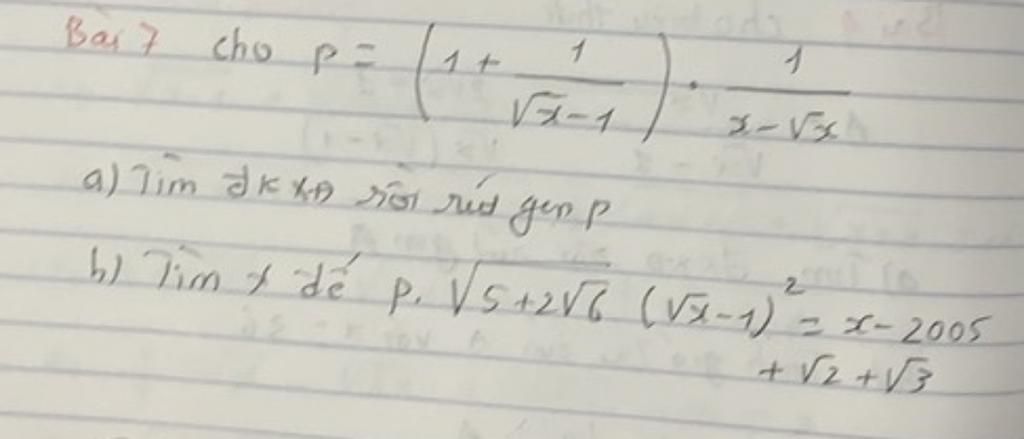 Bài 7 cho p = (1 + 1/(√x-1)) . 1/(x-√x)
a) Tìm đkxđ rồi rút gọn p
b) Tìm x để p. √(5+2√6) (√x-1)² = x-2005
+ √2 + √3